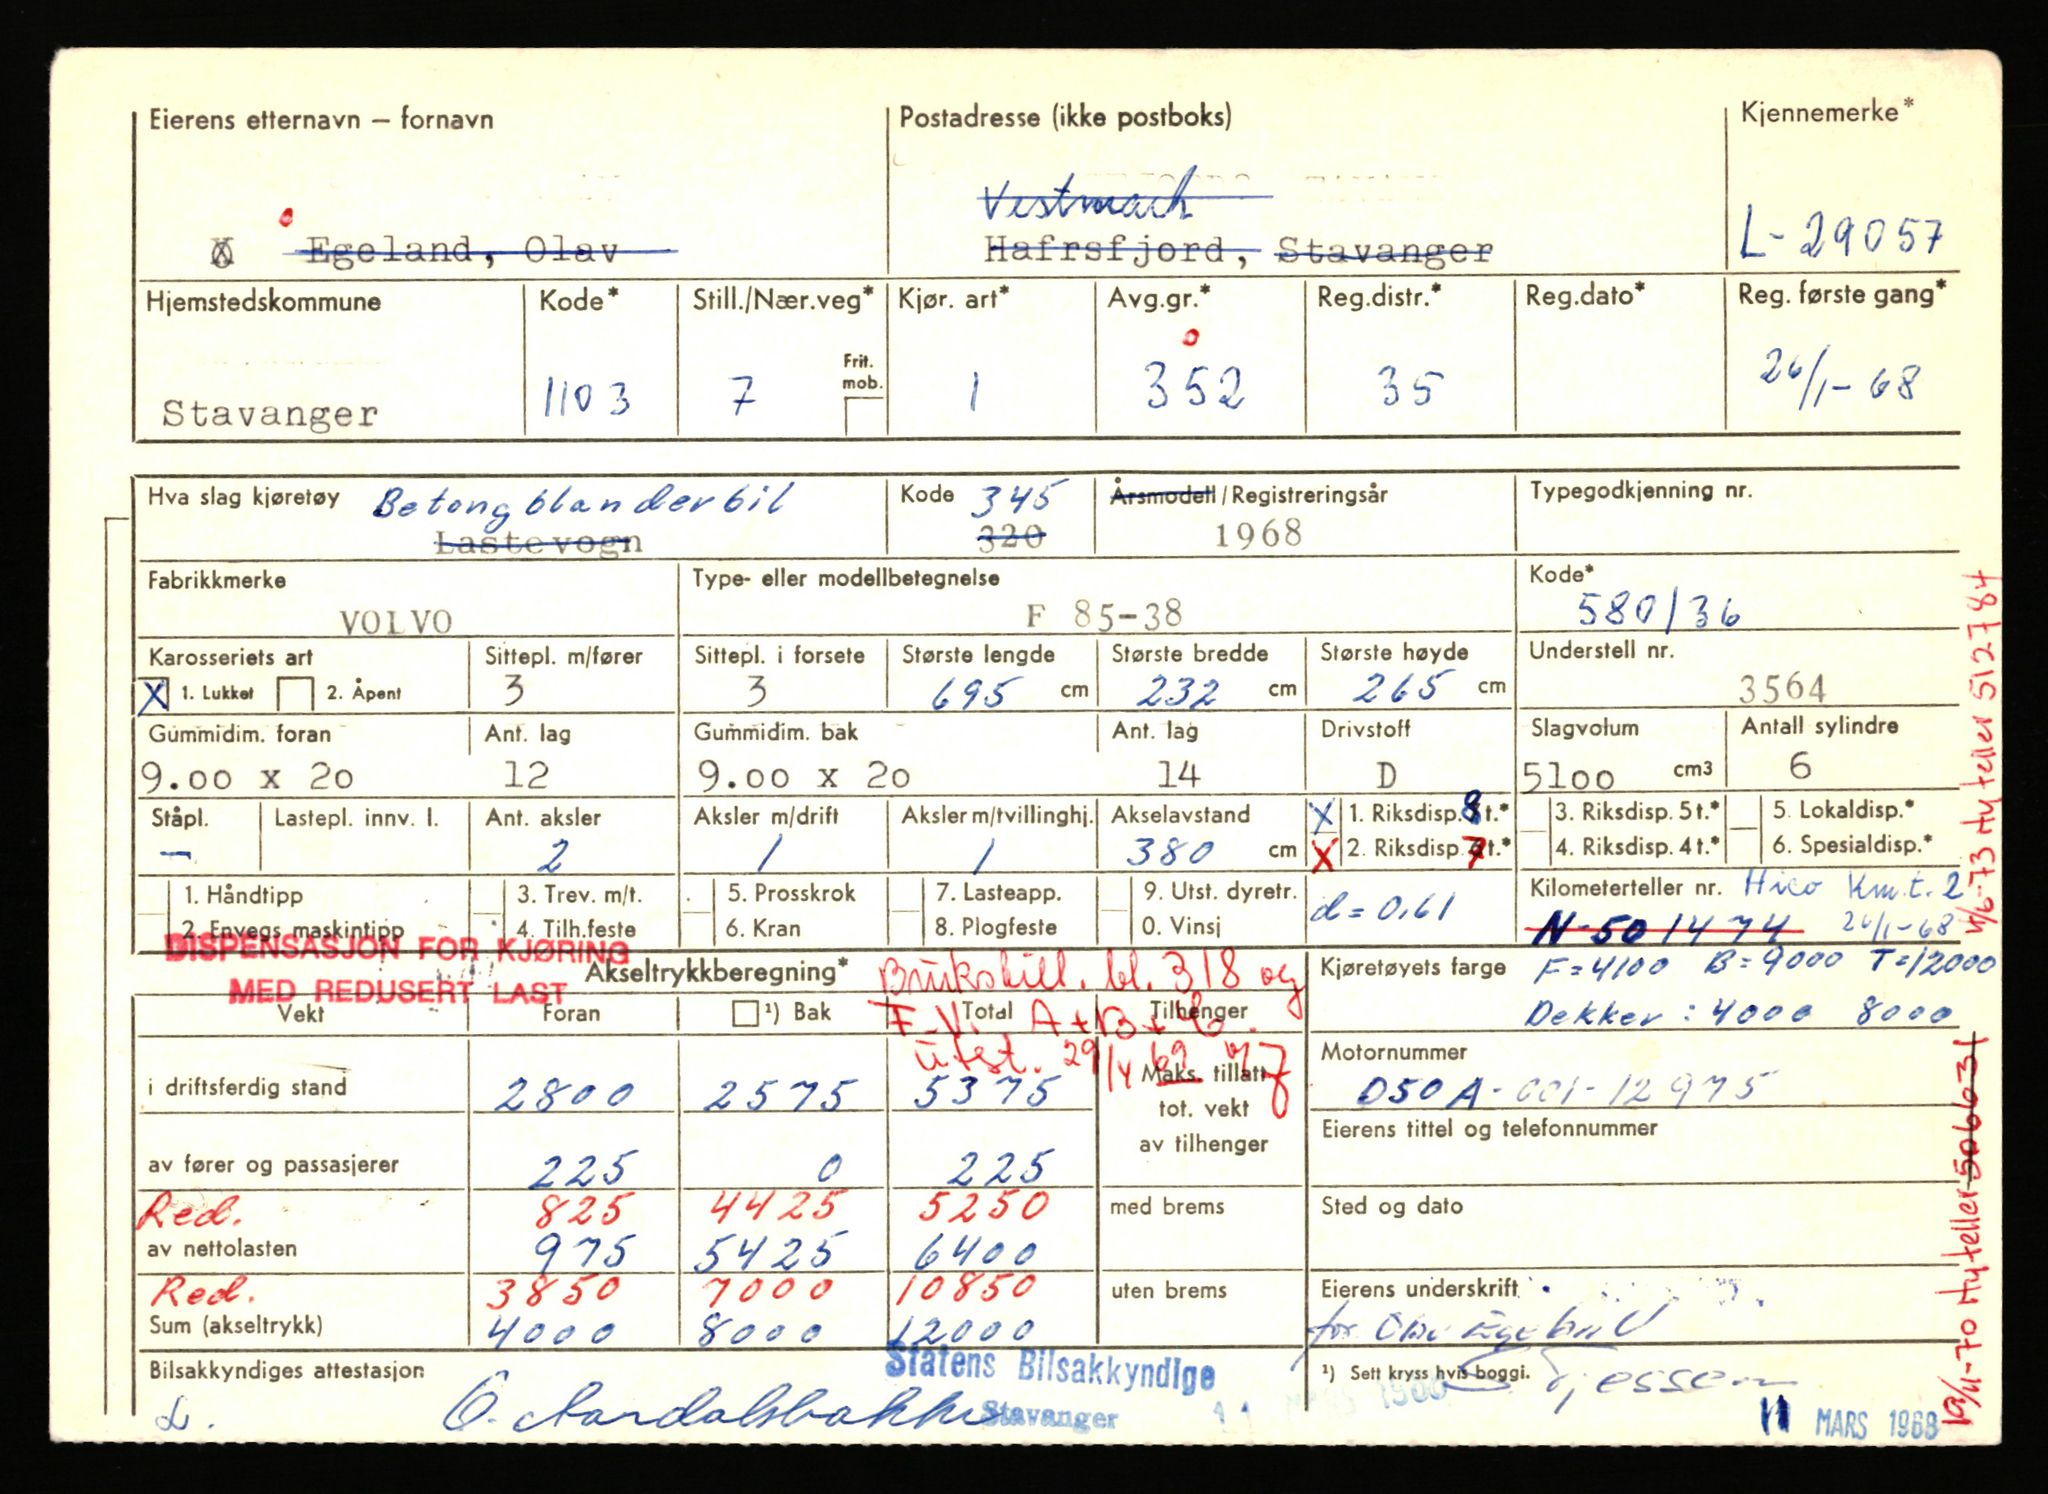 Eierens etternavn – fornavn
Postadresse (ikke postboks)
Kjennemerke*
Vestmark
Egeland, Olav
Hafrsfjord, Stavanger
L-29057
Hjemstedskommune
Kode*
Still./Nær.veg*
Kjør. art*
Avg.gr.*
Reg.distr.*
Reg.dato*
Reg. første gang*
Frit. mob.
Stavanger
1103
7
1
352
35
26/1-68
Hva slag kjøretøy
Betongblanderbil
Lastevogn
Kode 345
320
Årsmodell/Registreringsår
1968
Typegodkjenning nr.
Fabrikkmerke
VOLVO
Type- eller modellbetegnelse
F 85-38
Kode*
580/36
Karosseriets art
X 1. Lukket 2. Åpent
Sittepl. m/fører
3
Sittepl. i forsete
3
Største lengde
695 cm
Største bredde
232 cm
Største høyde
265 cm
Understell nr.
3564
Gummidim. foran
9.00 x 20
Ant. lag
12
Gummidim. bak
9.00 x 20
Ant. lag
14
Drivstoff
D
Slagvolum
5100 cm3
Antall sylindre
6
Ståpl.
–
Lastepl. innv. l.
Ant. aksler
2
Aksler m/drift
1
Aksler m/tvillinghj.
1
Akselavstand
380 cm
X 1. Riksdisp. 8 t.*
X 2. Riksdisp. 7 t.*
3. Riksdisp. 5 t.*
4. Riksdisp. 4 t.*
5. Lokaldisp.*
6. Spesialdisp.*
1. Håndtipp
2. Envegs maskintipp
3. Trev. m/t.
4. Tilh.feste
5. Prosskrok
6. Kran
7. Lasteapp.
8. Plogfeste
9. Utst. dyretr.
0. Vinsj
d = 0,61
Kilometerteller nr. Hico Km.t. 2
N-501474 26/1-68
DISPENSASJON FOR KJØRING
MED REDUSERT LAST
Akseltrykkberegning*
Brukstill. bl. 318 og
Utst. 29/4 69
Kjøretøyets farge F=4100 B=9000 T=12000
Dekker: 4000 8000
Vekt
Foran
¹) Bak
Total
Tilhenger
i driftsferdig stand
2800
2575
5375
Maks. tillatt
tot. vekt
av tilhenger
Motornummer
D50A-001-12975
Eierens tittel og telefonnummer
av fører og passasjerer
225
0
225
Red.
825
4425
5250
av nettolasten
975
5425
6400
med brems
Sted og dato
Red.
3850
7000
10850
Sum (akseltrykk)
4000
8000
12000
uten brems
Eierens underskrift
for
Bilsakkyndiges attestasjon
Statens Bilsakkyndige
Stavanger
¹) Sett kryss hvis boggi.
11 MARS 1968
4/6-73 Ny teller 512784
Ny teller 50663